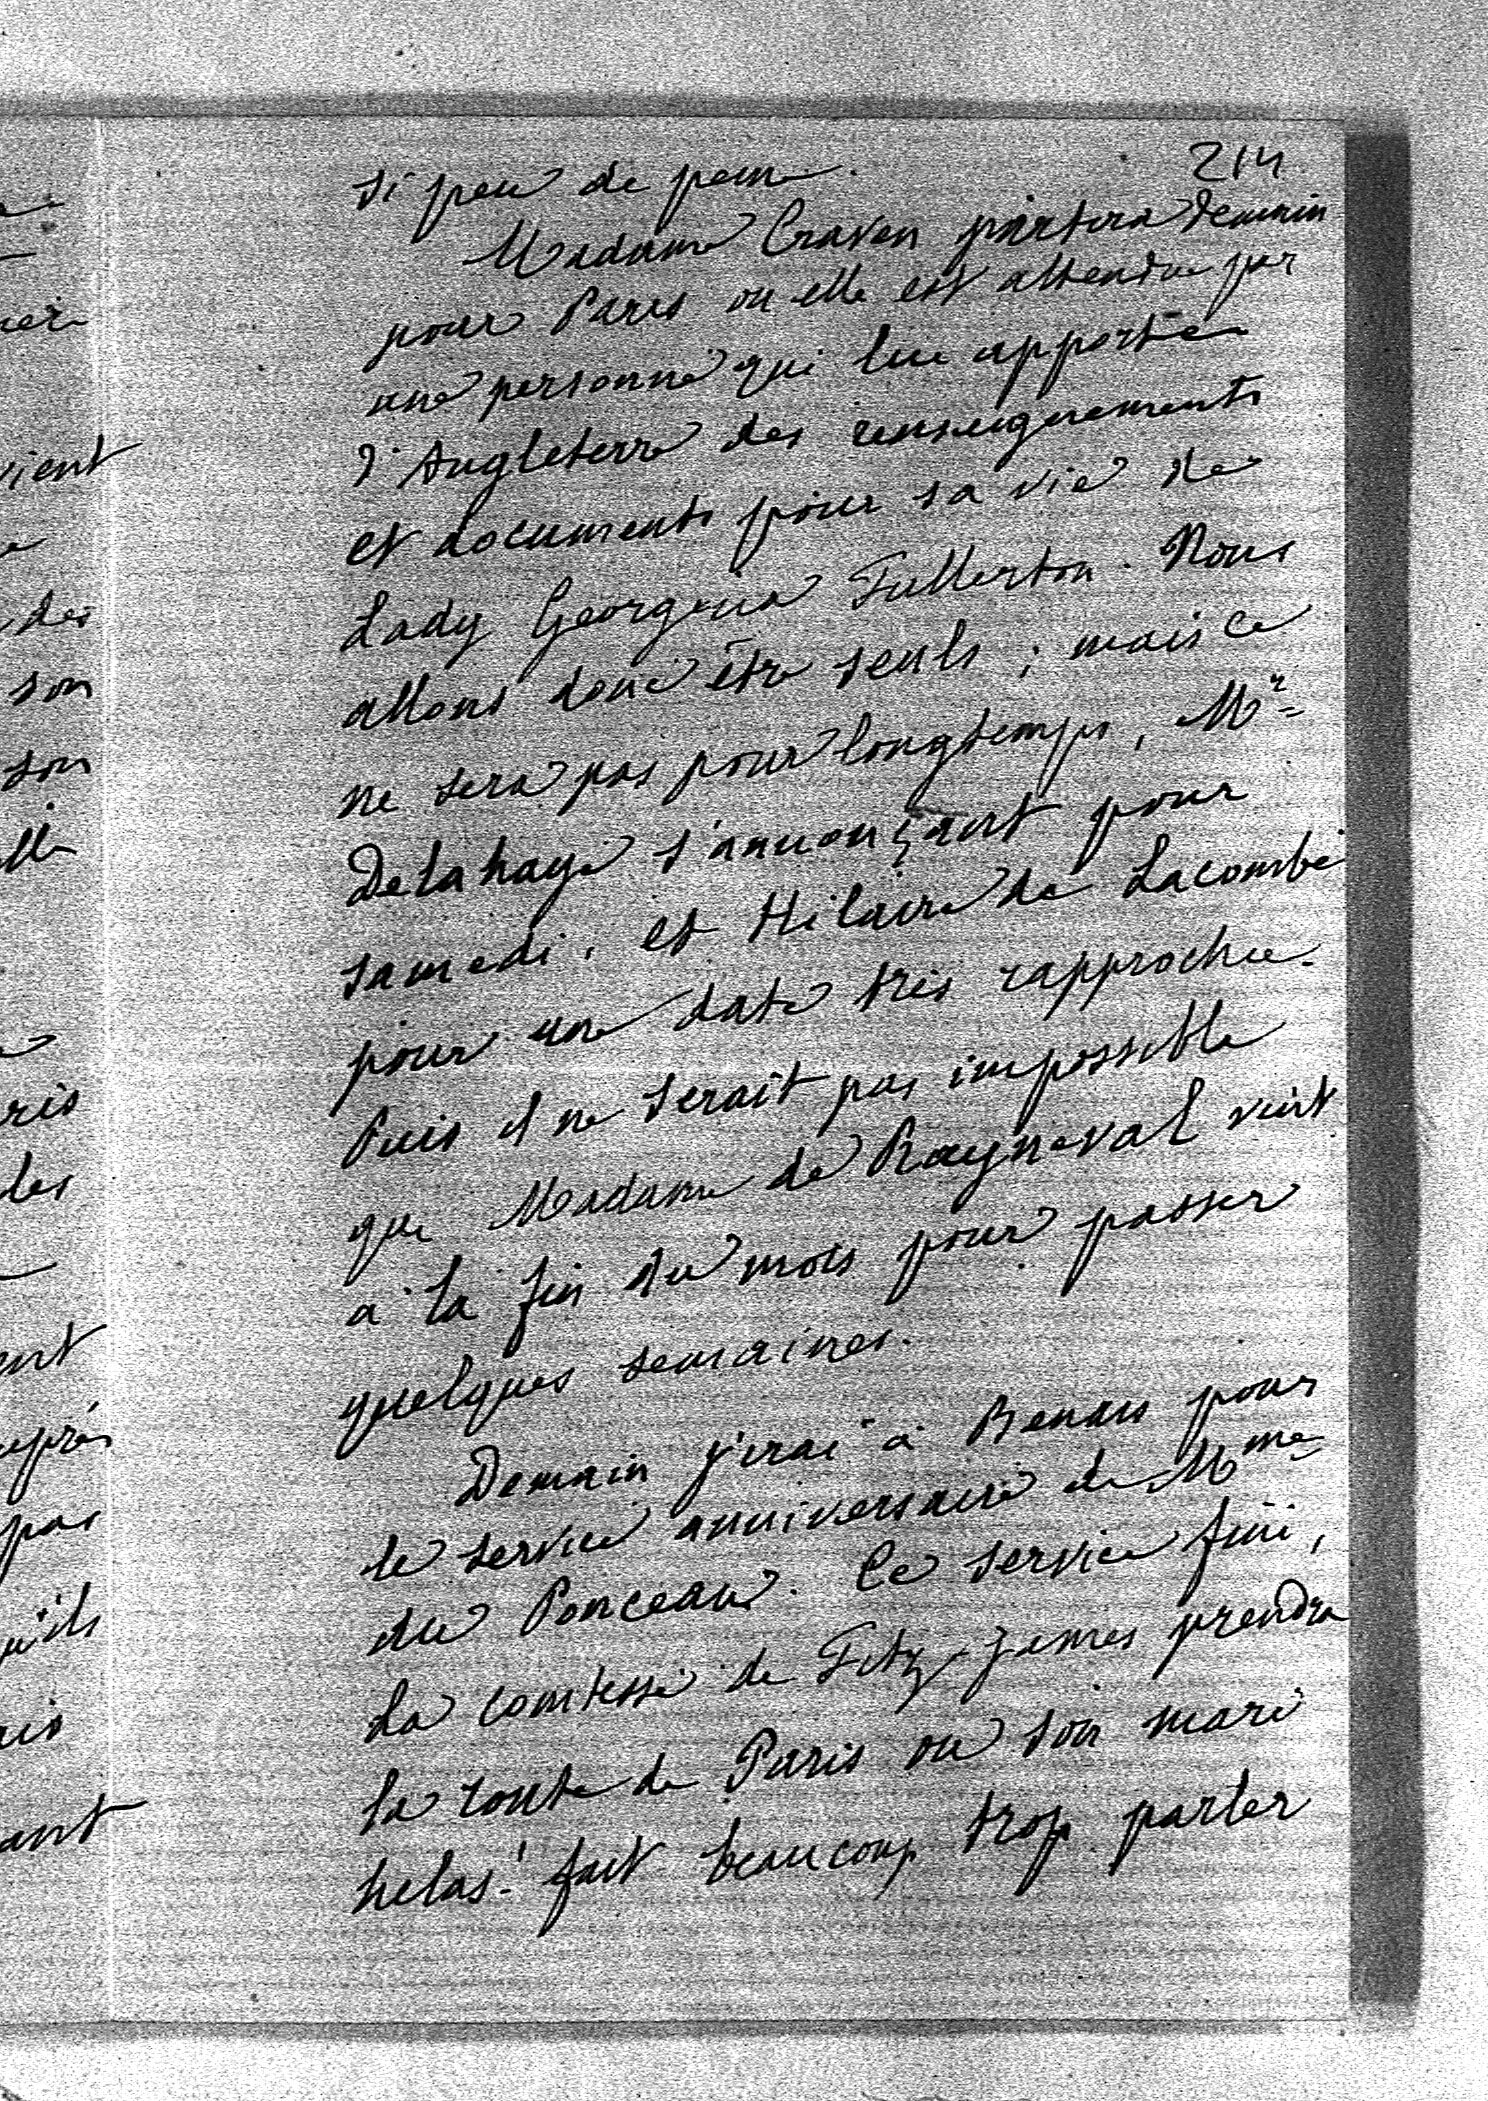 214
si peu de peine.
Madame Craven partira demain
pour Paris ou elle est attendue par
une personne qui lui apporte
d'Angleterre des renseignements
et documents pour sa vie de
Lady Georgina Fullerton. Nous
allons donc être seuls ; mais ce
ne sera pas pour longtemps, Mr
Delahaye s'annonçant pour
samedi, et Hilaire de Lacombe
pour une date très rapprochée.
Puis il ne serait pas impossible
que Madame de Rayneval vint
à la fin du mois pour passer
quelques semaines.
Demain j'irai à Benais pour
le service anniversaire de Mme
du Ponceau. Ce service fini,
la comtesse de Fitz-James prendra
la route de Paris ou son mari
helas! fait beaucoup trop parler
vient
des
son
son
ris
les
ent
après
pas
ils
ais
ant